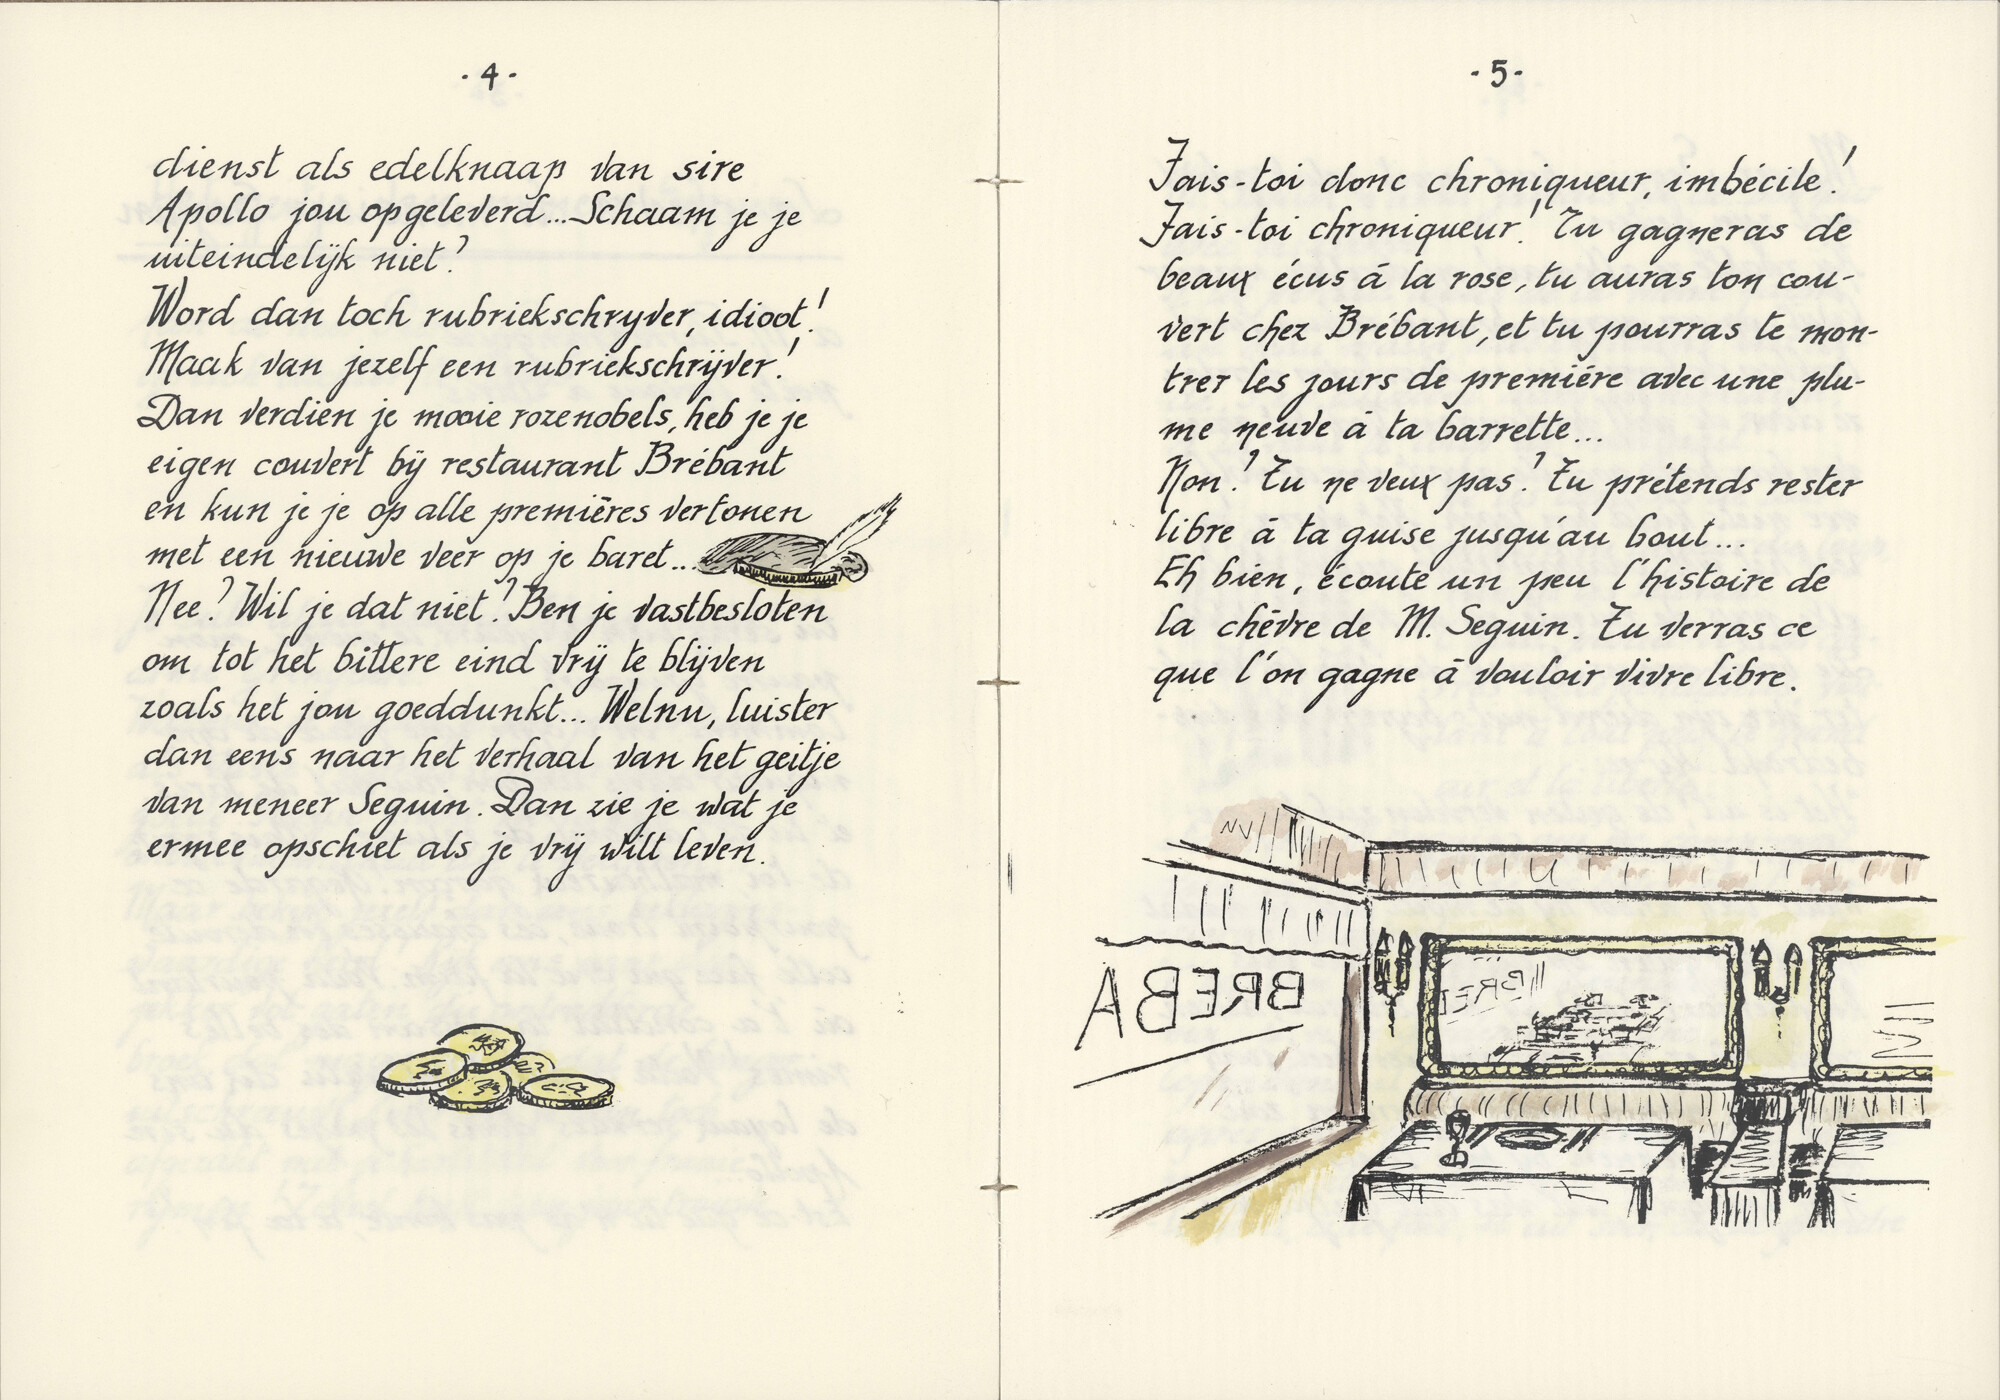 · 4 ·
dienst als edelknaap van sire
Apollo jou opgeleverd... Schaam je je
uiteindelijk niet?
Word dan toch rubriekschryver, idioot!
Maak van jezelf een rubriekschrijver!
Dan verdien je mooie rozenobels, heb je je
eigen couvert bij restaurant Brébant
en kun je je op alle premières vertonen
met een nieuwe veer op je baret...
Nee? Wil je dat niet? Ben je vastbesloten
om tot het bittere eind vrij te blijven
zoals het jou goeddunkt... Welnu, luister
dan eens naar het verhaal van het geitje
van meneer Seguin. Dan zie je wat je
ermee opschiet als je vrij wilt leven.
· 5 ·
Fais-toi donc chroniqueur, imbécile!
Fais-toi chroniqueur! Tu gagneras de
beaux écus à la rose, tu auras ton cou-
vert chez Brébant, et tu pourras te mon-
trer les jours de première avec une plu-
me neuve à ta barrette...
Non? Tu ne veux pas? Tu prétends rester
libre à ta guise jusqu'au bout...
Eh bien, écoute un peu l'histoire de
la chèvre de M. Seguin. Tu verras ce
que l'on gagne à vouloir vivre libre.
BREBA
BRE